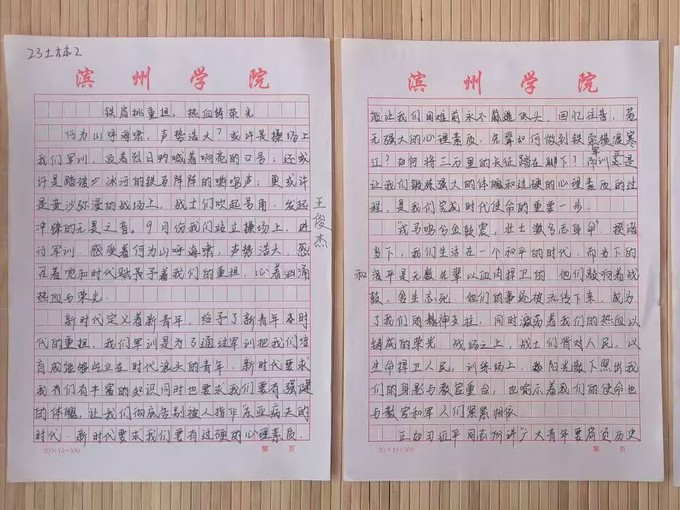 23土本2
滨州学院
铁肩挑重担，热血铸荣光
何为山呼海啸，声势浩大？或许是操场上
我们军训，迎着烈日呐喊着响亮的口号；还或
许是踏破冰河的铁马阵阵的嘶鸣声；更或许
是黄沙弥漫的战场上，战士们吹起号角，发起
冲锋的无畏之音。9月份我们站立操场上，进
行军训，感受着何为山呼海啸，声势浩大，感
召着党和时代赋予着我们的重担，心着汹涌
热血与荣光
新时代定义着新青年，给予了新青年及时
代的重担，我们军训是为了通过军训把我们培
育成能够屹立在时代浪头的青年，新时代要求
我们有丰富的知识同时也要求我们要有强健
的体魄，让我们彻底告别被人指作"东亚病夫"的
时代。新时代要求我们要有过硬的心理素质，
20×15=300
第 页
王俊杰
滨州学院
能让我们困难前永不低头，回忆往昔，若
无强大的心理素质，先辈如何做到铁索横渡寒
江？如何将三万里的长征踏在脚下？军训意是
让我们锻炼强大的体魄和过硬的心理素质的过
程，是我们完成时代使命的重要一步。
戎马鸣兮金鼓震，壮士激兮忘身命，授诸
当下，我们生活在一个和平的时代，而当下的
和平是无数先辈以血肉捍卫的，他们敲响着战
鼓，舍生忘死，他们的事迹被流传下来，成为
了我们的精神支柱，同时激荡着我们的热血以
铸成的荣光，战场之上，战士们将对人民，以
生命捍卫人民，训练场上，都阳光散下照出我
们的身影与教官重合，也喻示着我们的使命也
与教官和军人们紧紧相依
正如习近平同志所讲"广大青年要肩负历史
20×15=300
第 页